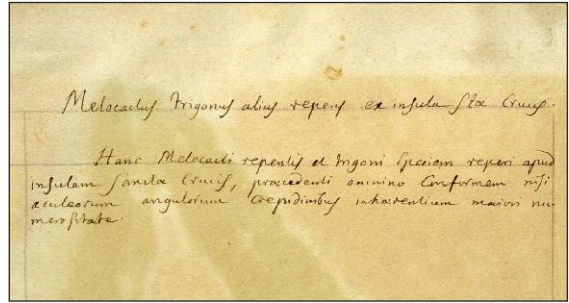 Melocactus trigonus alius repens ex insula Stæ Crucis.
Hanc Melocacti repentis et trigoni speciem reperi apud
insulam Sanctæ Crucis, præcedenti omnino conformem nisi
aculeorum angulorum crepidinibus inhærentium maiori nu-
merositate.